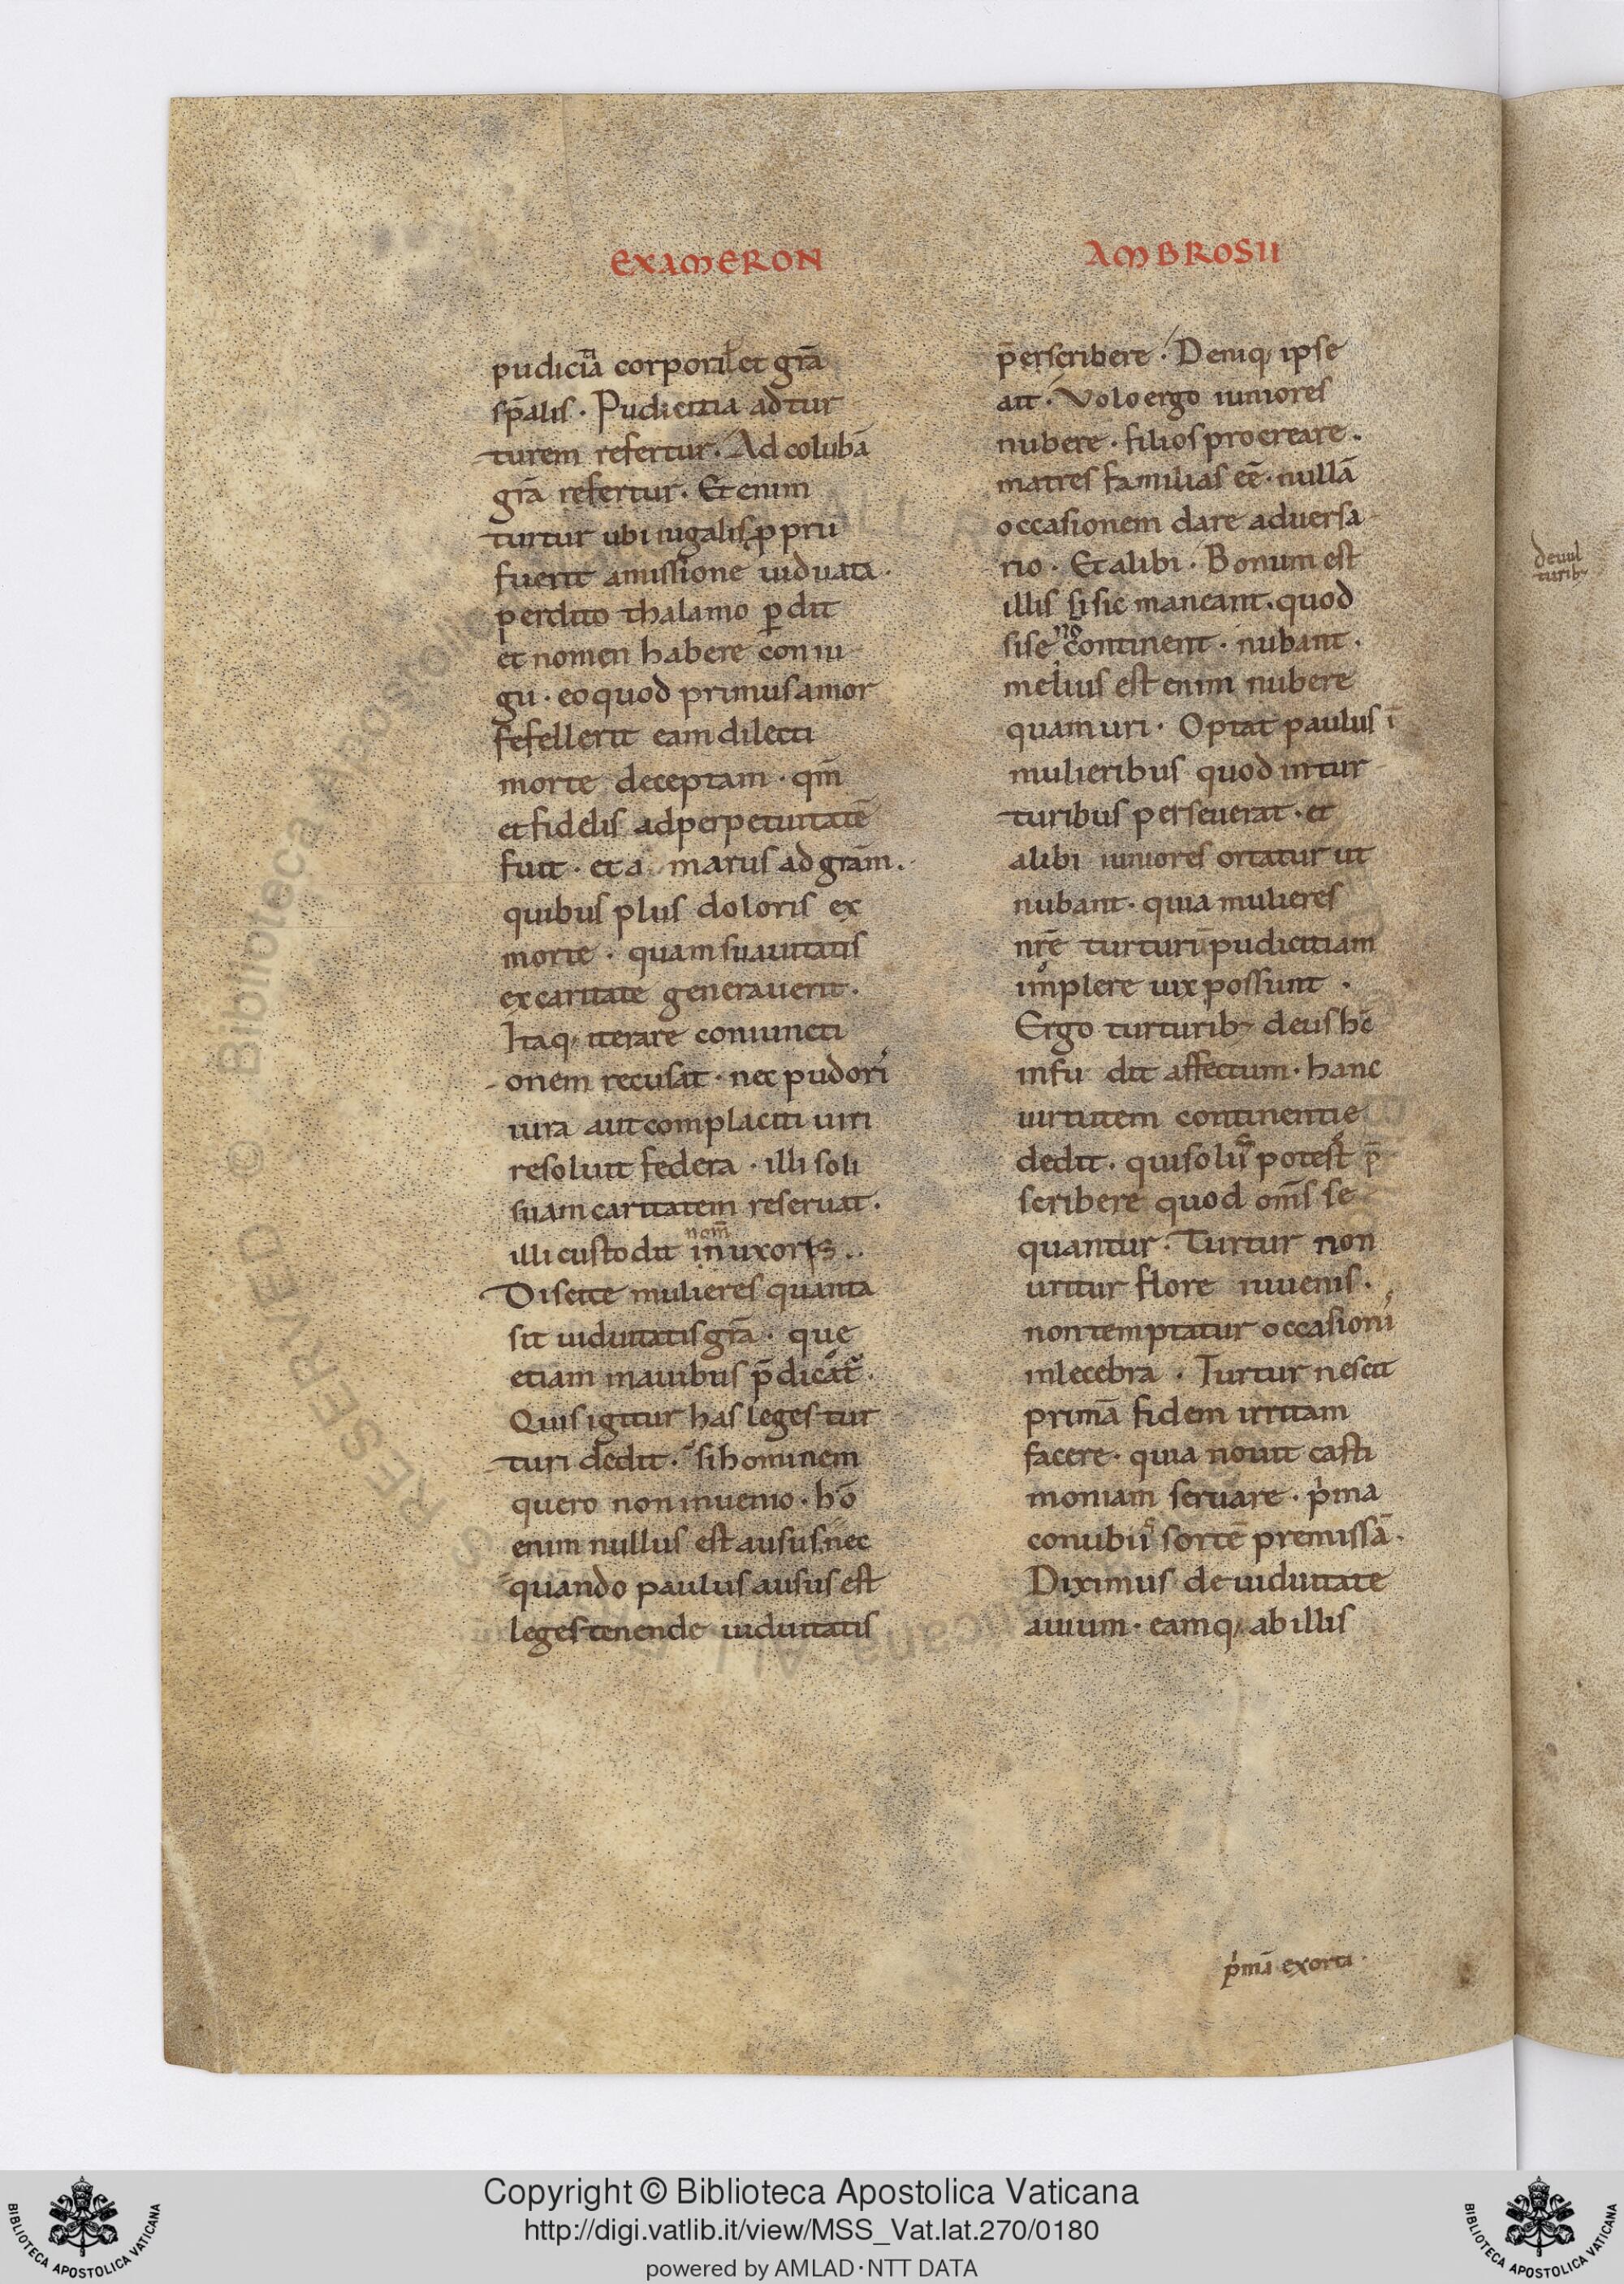 EXAMERON
pudiciā corporis et grā
sp̄alis · Pudicitia ad tur
turem refertur · Ad colubā
grā refertur · Et enim
turtur ubi iugalis ꝓprii
fuerit amissione uiduata ·
perdito thalamo ꝑdit
et nomen habere coniu
gii · eo quod primus amor
fefellerit eam dilecti
morte deceptam · qm̄
et fidelis ad perpetuitatē
fuit · et a marus ad grām ·
quibus plus doloris ex
morte · quam suauitatis
ex caritate generauerit ·
Itaq; iterare coniuncti
onem recusat · nec pudoris
iura aut complaciti uiri
resoluit federa · illi soli
suam caritatem reseruat ·
illi custodit nom̄ in uxoris ·
Discite mulieres quanta
sit uiduitatis grā · que
etiam in auibus p̄dicat᷑ ·
Quis igitur has leges tur
turi dedit · si hominem
quero non inuenio · hō
enim nullus est ausus · nec
quando paulus ausus est
leges tenende uiduitatis
AMBROSII
p̄erscribere · Deniq; ipse
ait · Volo ergo iuniores
nubere · filios procreare ·
matres familias eē · nullā
occasionem dare aduersa
rio · Et alibi · Bonum est
illis si sic maneant · quod
si se nō continent · nubant ·
melius est enim nubere
quam uri · Optat paulus ī
mulieribus quod in tur
turibus perseuerat · et
alibi iuniores ortatur ut
nubant · quia mulieres
nrē turturū pudicitiam
implere uix possunt ·
Ergo turturib; deus hc̄
infu dit affectum · hanc
uirtutem continentie
dedit · qui solus potest p̄
scribere quod om̄s se
quantur · Turtur non
uritur flore iuuenis ·
non temptatur occasionis
inlecebra · Turtur nescit
primā fidem irritam
facere · quia nouit casti
moniam seruare · p̍ma
conubii sortē premissā ·
Diximus de uiduitate
auium · eamq; ab illis
p̍mū exorta ·
de uul
turib;
Copyright © Biblioteca Apostolica Vaticana
http://digi.vatlib.it/view/MSS_Vat.lat.270/0180
powered by AMLAD·NTT DATA
BIBLIOTECA APOSTOLICA VATICANA
BIBLIOTECA APOSTOLICA VATICANA